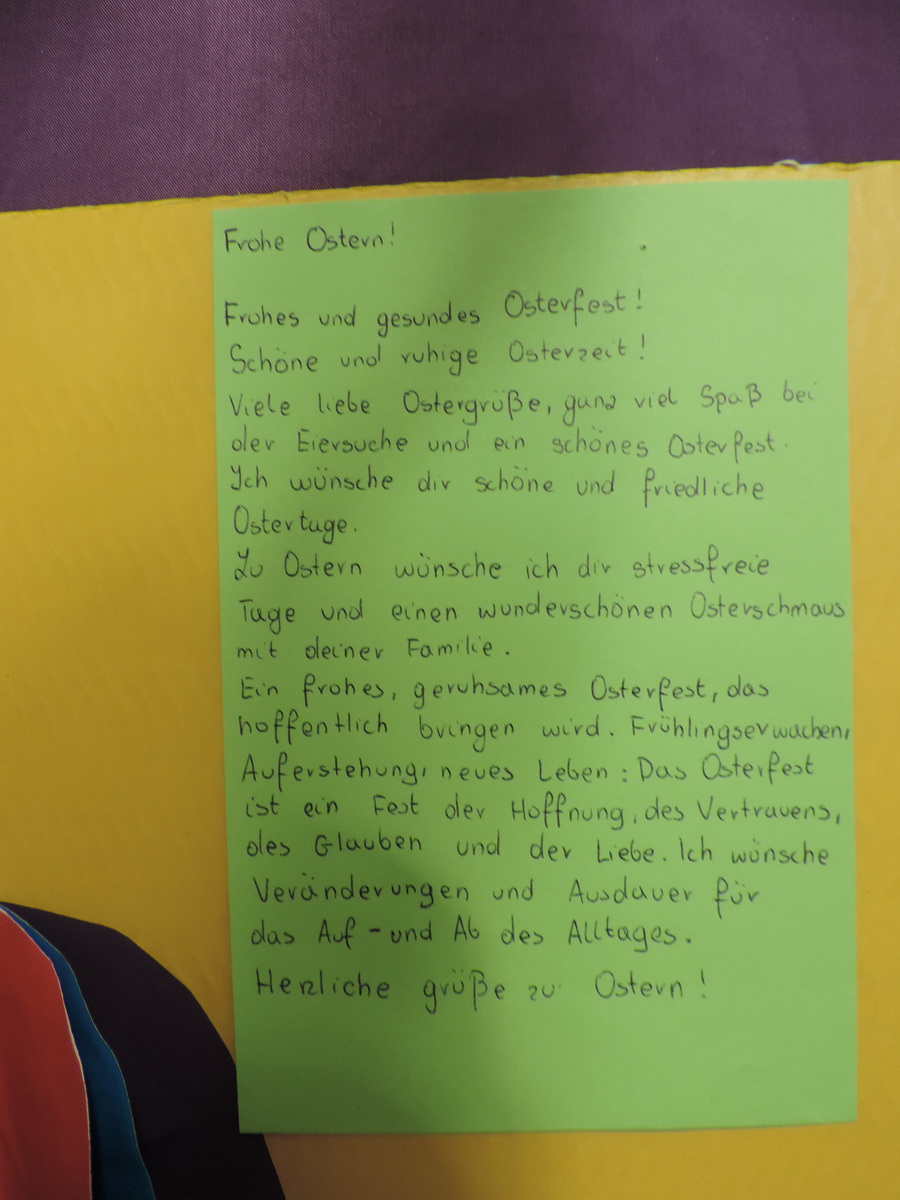 Frohe Ostern!
Frohes und gesundes Osterfest!
Schöne und ruhige Osterzeit!
Viele liebe Ostergrüße, ganz viel Spaß bei
der Eiersuche und ein schönes Osterfest.
Ich wünsche dir schöne und friedliche
Ostertage.
Zu Ostern wünsche ich dir stressfreie
Tage und einen wunderschönen Osterschmaus
mit deiner Familie.
Ein frohes, geruhsames Osterfest, das
hoffentlich bringen wird. Frühlingserwachen,
Auferstehung, neues Leben: Das Osterfest
ist ein Fest der Hoffnung, des Vertrauens,
des Glauben und der Liebe. Ich wünsche
Veränderungen und Ausdauer für
das Auf-und Ab des Alltages.
Herzliche grüße zu Ostern!